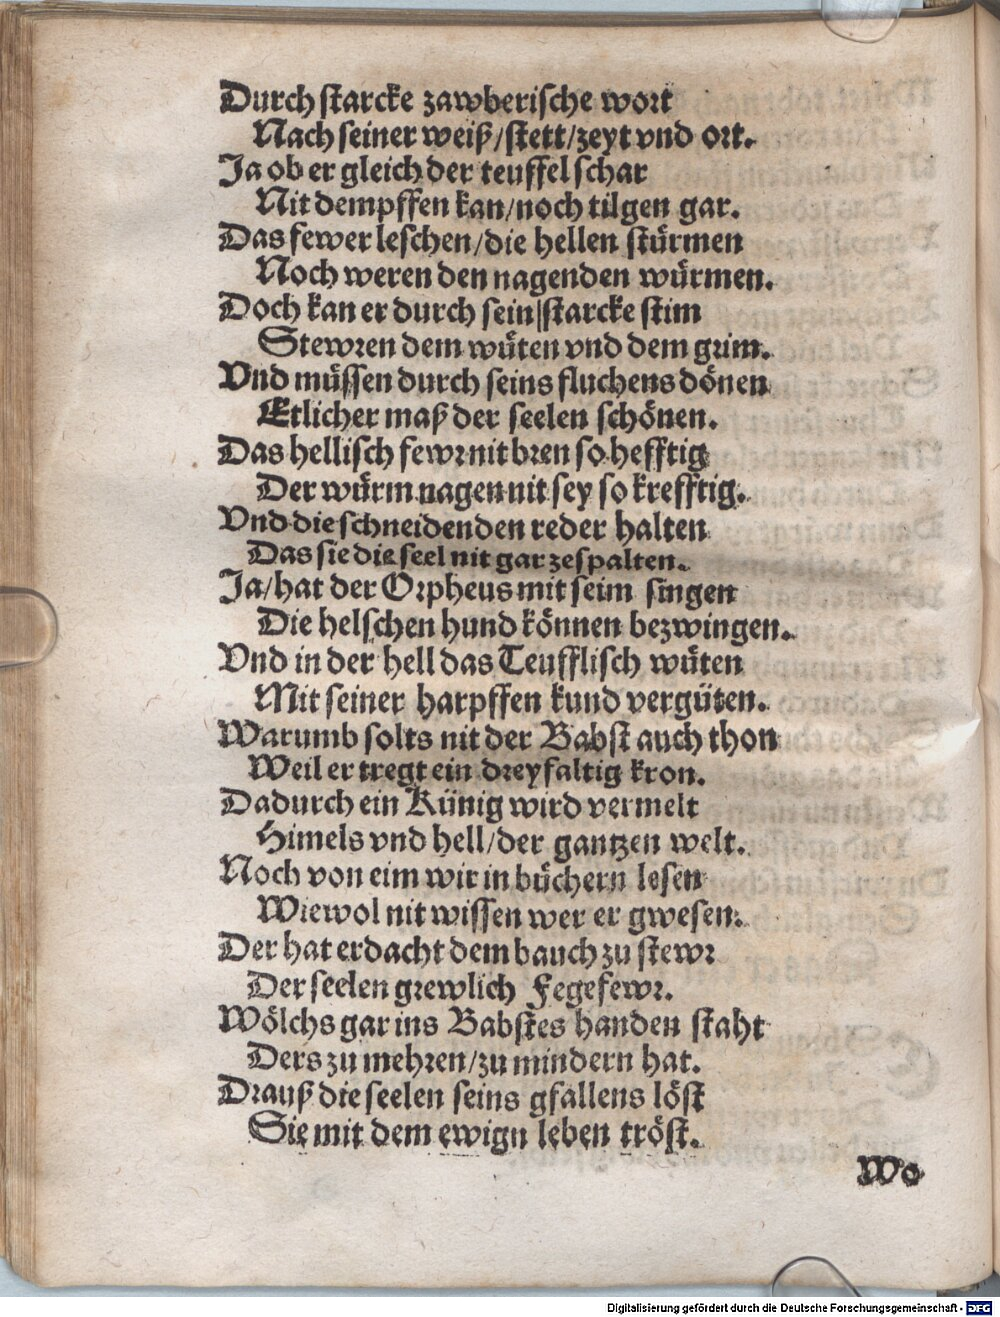 Durch starcke zawberische wort
Nach seiner weiß/stett/zeyt vnd ort.
Ja ob er gleich der teuffel schar
Nit dempffen kan/noch tilgen gar.
Das fewer leschen/die hellen stürmen
Noch weren den nagenden würmen.
Doch kan er durch sein starcke stim
Stewren dem wüten vnd dem grim.
Vnd müssen durch seins fluchens dönen
Etlicher maß der seelen schönen.
Das hellisch fewr nit bren so hefftig
Der würm nagen nit sey so krefftig.
Vnd die schneidenden reder halten
Das sie die seel nit gar zespalten.
Ja/hat der Orpheus mit seim singen
Die helschen hund können bezwingen.
Vnd in der hell das Teufflisch wüten
Mit seiner harpffen kund vergüten.
Warumb solts nit der Babst auch thon
Weil er tregt ein dreyfaltig kron.
Dadurch ein Künig wird vermelt
Himels vnd hell/der gantzen welt.
Noch von eim wir in büchern lesen
Wiewol nit wissen wer er gwesen.
Der hat erdacht dem bauch zu stewr
Der seelen grewlich Fegefewr.
Wölchs gar ins Babstes handen staht
Ders zu mehren/zu mindern hat.
Drauß die seelen seins gfallens löst
Sie mit dem ewign leben tröst.
Wo
Digitalisierung gefördert durch die Deutsche Forschungsgemeinschaft - DFG